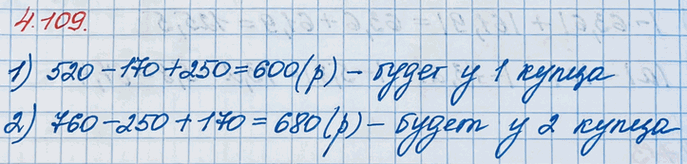 4.109.
1) 520-170+250=600(р) – будет у 1 купца
2) 760-250+170=680(р) – будет у 2 купца